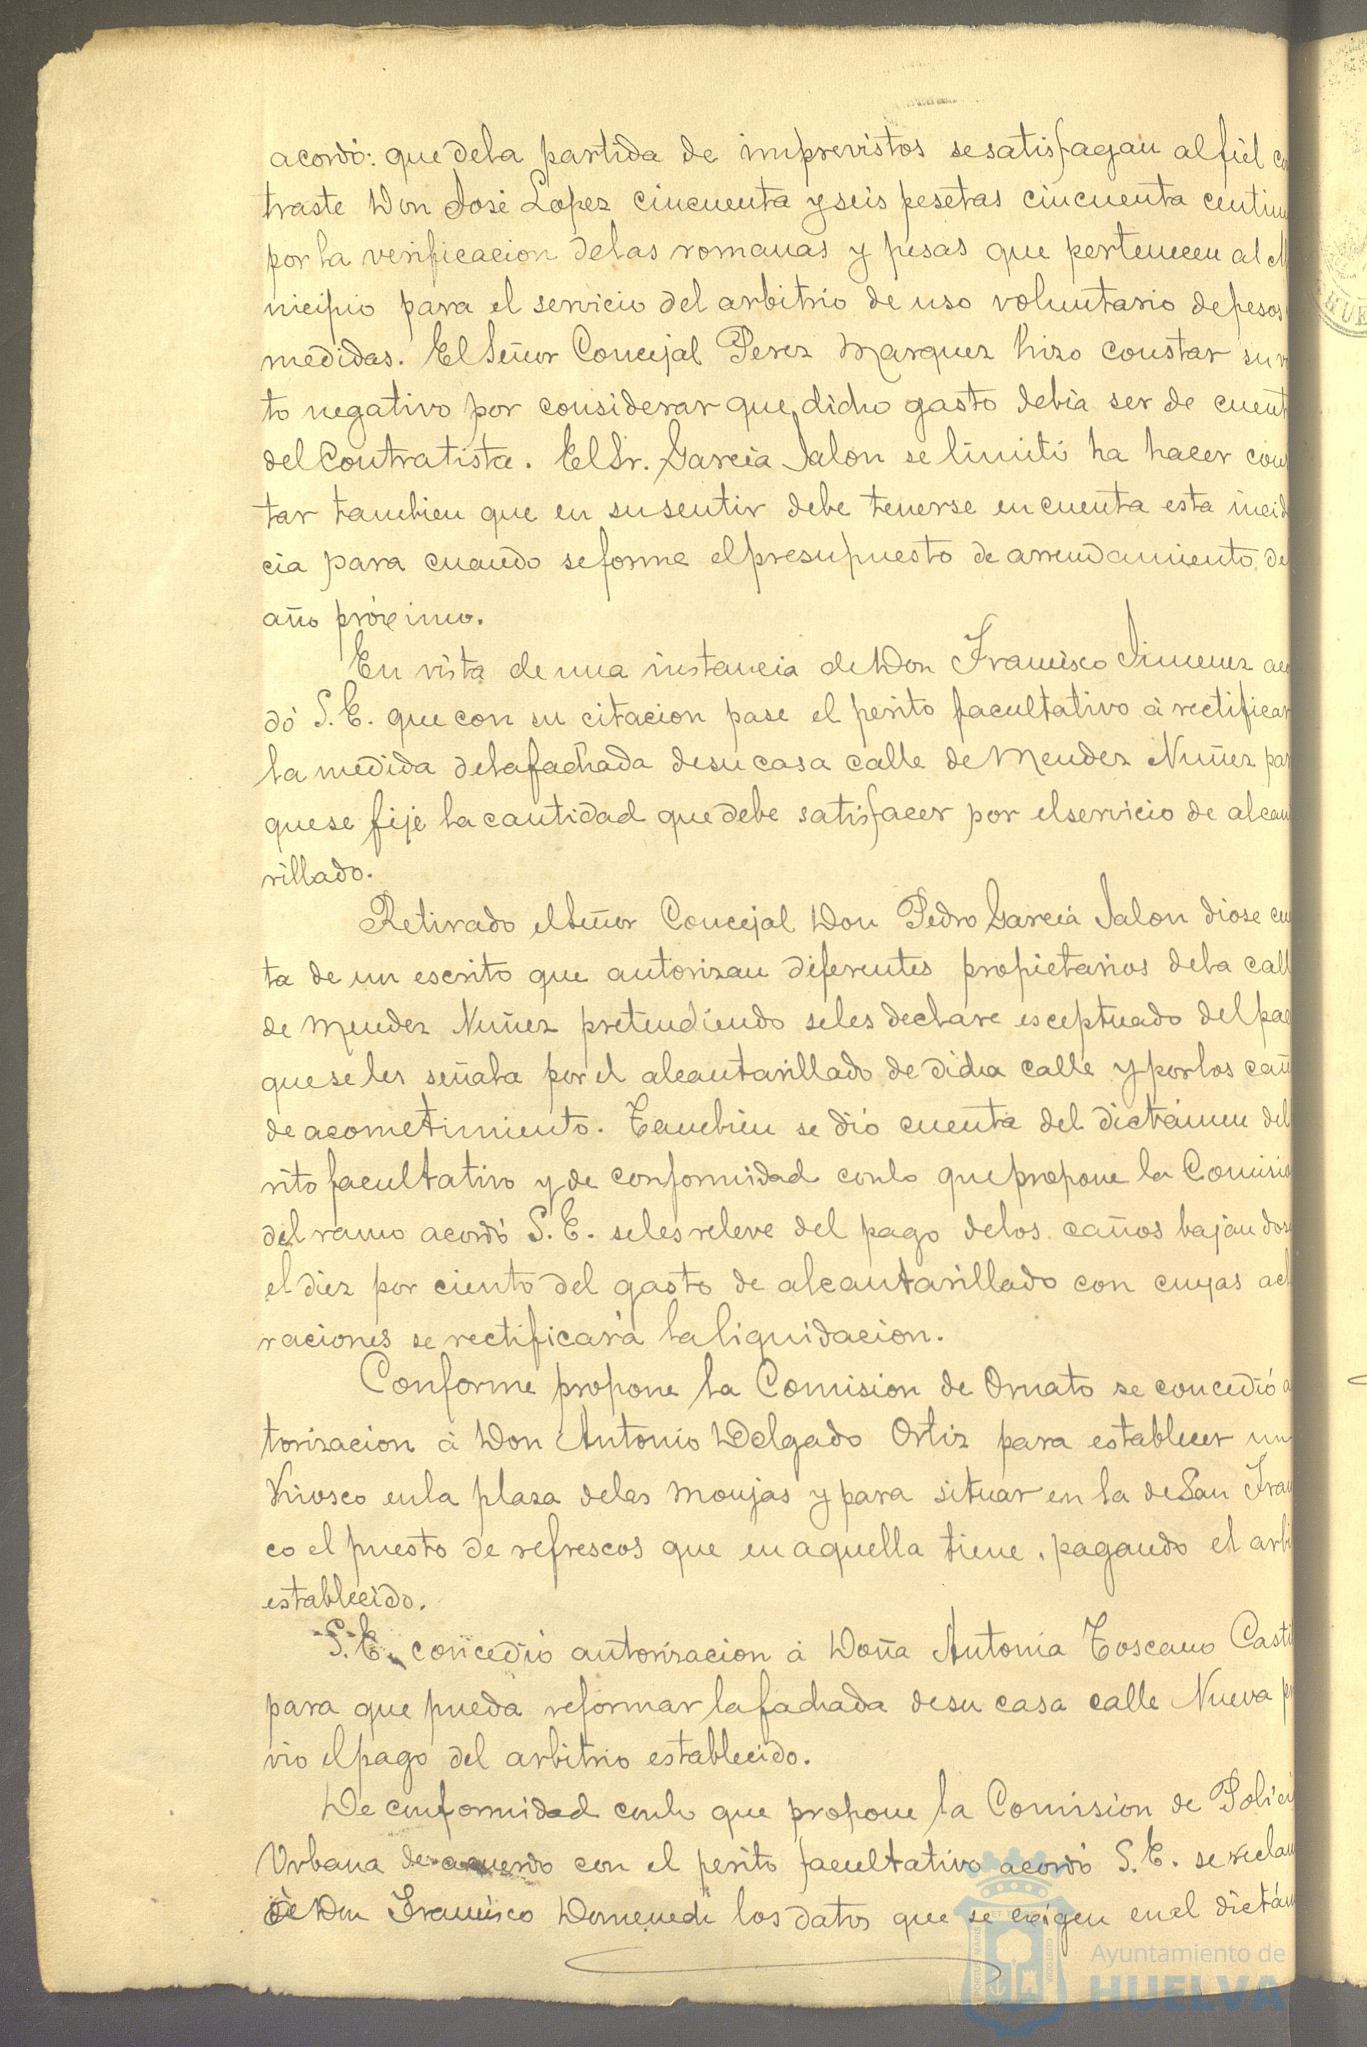 acordó: que dela partida de imprevistos sesatisfagan alfiel co
traste Don José Lopez cincuenta yseis pesetas cincuenta centim
por la verificacion delas romanas y pesas que pertenecen al M
nicipio para el servicio del arbitrio de uso voluntario depesos
medidas. El Señor Concejal Perez Marquez hizo constar su v
to negativo por considerar que dicho gasto debia ser de cuent
del Contratista. El Sr. Garcia Jalon se limitó ha hacer cons
tar tambien que en susentir debe tenerse encuenta esta incid
cia para cuando seforme elpresupuesto de arrendamiento de
año próximo.
En vista de una instancia de Don Francisco Jimenez aco
dó S. E. que con su citacion pase el perito facultativo á rectificar
la medida delafachada desu casa calle de Mendez Nuñez par
quese fije la cantidad que debe satisfacer por elservicio de alcan
rillado.
Retirado elSeñor Concejal Don Pedro Garcia Jalon diose cu
ta de un escrito que autorizan diferentes propietarios dela call
de Mendez Nuñez pretendiendo seles declare esceptuado del pa
quese les señala por el alcantarillado de dicha calle y porlos cañ
de acometimiento. Tambien se dió cuenta del dictámen del
rito facultativo y de conformidad conlo que propone la Comisio
del ramo acordó S. E. seles releve del pago delos caños bajandos
el diez por ciento del gasto de alcantarillado con cuyas acl
raciones se rectificará la liquidacion.
Conforme propone la Comision de Ornato se concedió a
torizacion á Don Antonio Delgado Ortiz para establecer un
Kiosco enla plaza delas Monjas y para situar en la de San Fran
co el puesto de refrescos que en aquella tiene, pagando el arbi
establecido.
S. E. concedió autorizacion á Doña Antonia Toscano Casti
para que pueda reformar lafachada desu casa calle Nueva p
vio elpago del arbitrio establecido.
De conformidad conlo que propone la Comision de Polici
Urbana de acuerdo con el perito facultativo acordó S. E. se reclam
de Don Francisco Domenech los datos que se exigen enel dictám
Ayuntamiento de
HUELVA